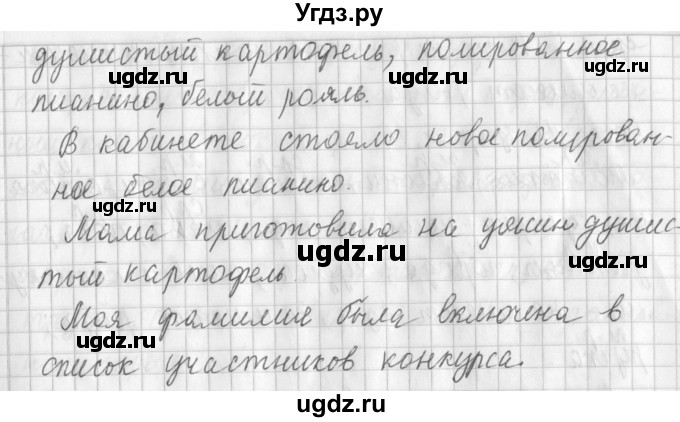 Угдз.ру
душистый картофель, полированное
пианино, белый рояль.
В кабинете стояло новое полирован-
ное белое пианино.
Мама приготовила на ужин душис-
тый картофель
Моя фамилия была включена в
список участников конкурса.
ugdz.ru
ugdz.ru
ugdz.ru
ugdz.ru
ugdz.ru
ugdz.ru
ugdz.ru
ugdz.ru
ugdz.ru
ugdz.ru
ugdz.ru